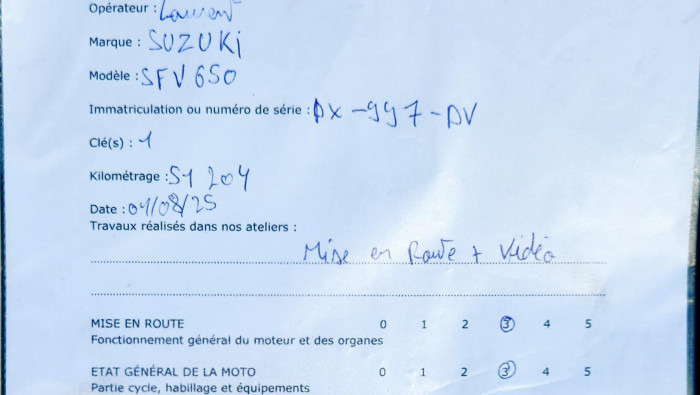 Opérateur : Laurent
Marque : SUZUKi
Modèle : SFV 650
Immatriculation ou numéro de série : DX-997-DV
Clé(s) : 1
Kilométrage : 51 204
Date : 01/08/25
Travaux réalisés dans nos ateliers :
Mise en Route + Vidéo
MISE EN ROUTE 0 1 2 3 4 5
Fonctionnement général du moteur et des organes
ETAT GÉNÉRAL DE LA MOTO 0 1 2 3 4 5
Partie cycle, habillage et équipements